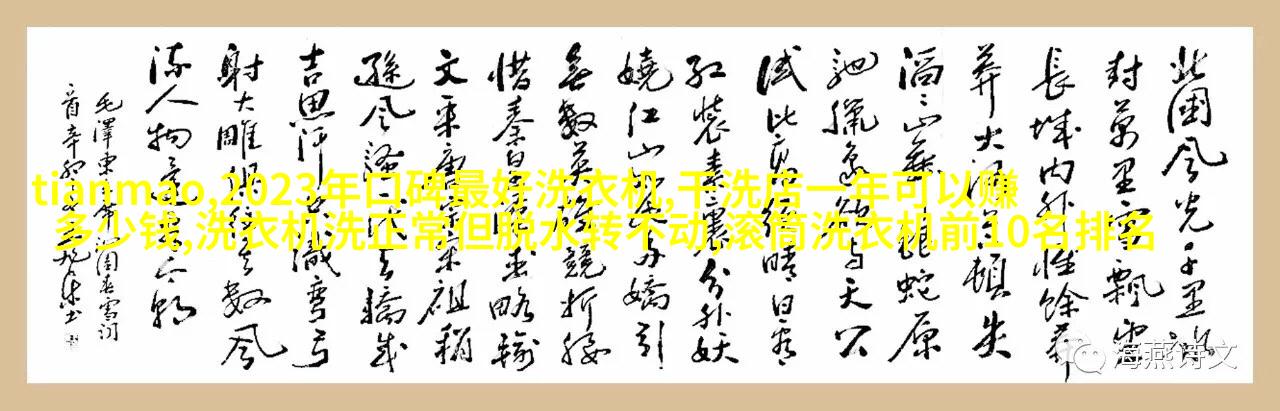 北國风光千里冰
封萬里雪飄望
長城内外惟餘莽
莽大河上下頓失
滔滔山舞银蛇原
驰臘象欲与天公
试比高须晴日看
红裝素裹分外妖
嬈江山如此多嬌引
無數英雄競折腰
惜秦皇汉武略输
文采唐宗宋祖稍
遜风骚一代天驕成
吉思汗只識彎弓
射大雕俱往矣數风
流人物还看今朝
毛澤東沁園春雪词
tianmao,2023年口碑最好洗衣机,干洗店一年可以赚
多少钱,洗衣机洗正常但脱水转不动,滚筒洗衣机前10名排名
海燕诗文